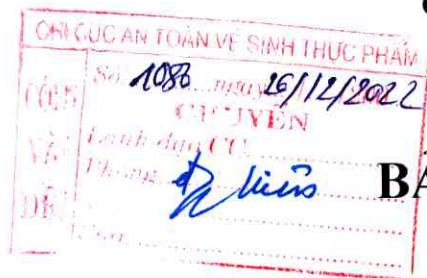 CHI CỤC AN TOÀN VỆ SINH THỰC PHẨM
CÔNG Số 1086 ngày 26/12/2022
CHUYỂN
VĂN Lãnh đạo CC
Phòng
ĐẾN
BẢ